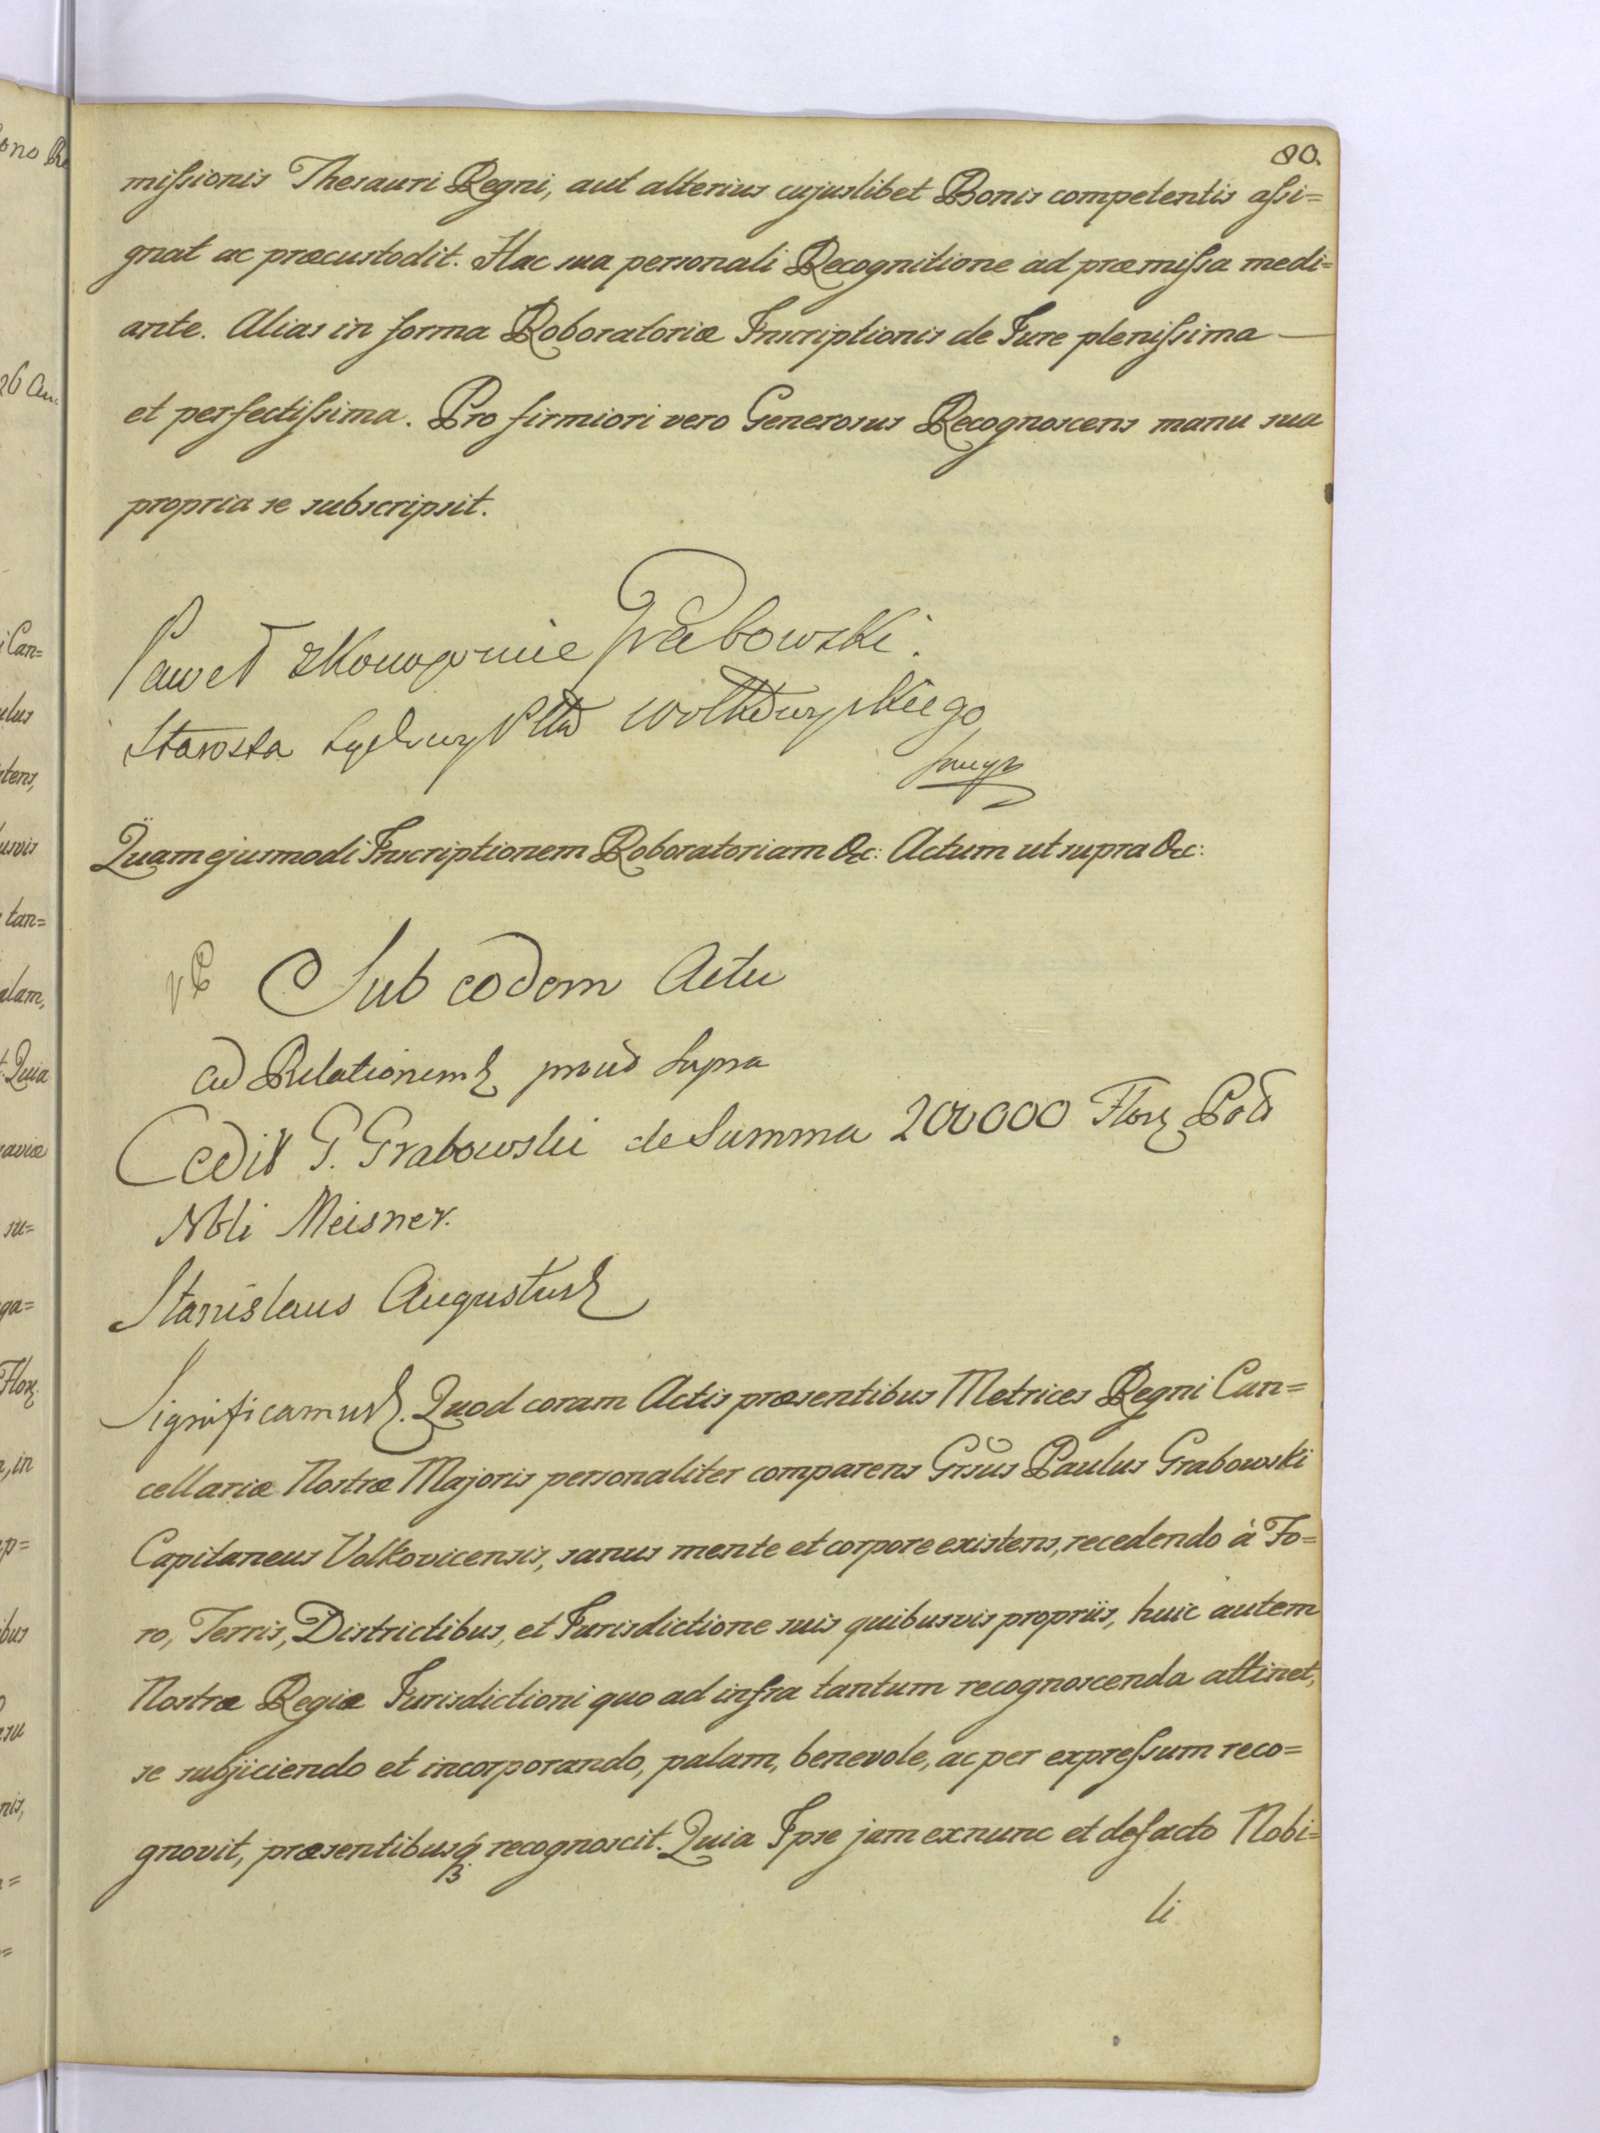 80.
missionis Thesauri Regni, aut alterius cujuslibet Bonis competentis assi=
gnat ac præcustodit. Hac sua personali Recognitione ad præmissa medi=
ante. Alias in forma Roboratoriæ Inscriptionis de Jure plenissima —
et perfectissima. Pro firmiori vero Generosus Recognoscens manu sua
propria se subscripsit.
Paweł z Konopnice Grabowski.
Starosta
Quam ejusmodi Inscriptionem Roboratoriam &c: Actum ut supra &c:
Sub eodem Actu
Ad Relationem prout Supra
Cedit G. Grabowski de Summa 200000 Flor Pol
Nbli Meisner.
Stanislaus Augustus
Significamus. Quod coram Actis præsentibus Metrices Regni Can=
cellariæ Nostræ Majoris personaliter comparens Grsus Paulus Grabowski
Capitaneus Volkovicensis, sanus mente et corpore existens, recedendo à Fo=
ro, Terris, Districtibus, et Jurisdictione suis quibusvis propriis, huic autem
Nostræ Regiæ Jurisdictioni quo ad infra tantum recognoscenda attinet,
se subjiciendo et incorporando, palam, benevole, ac per expressum reco=
gnovit, præsentibusq recognoscit. Quia Ipse jam exnunc et defacto Nobi=
li